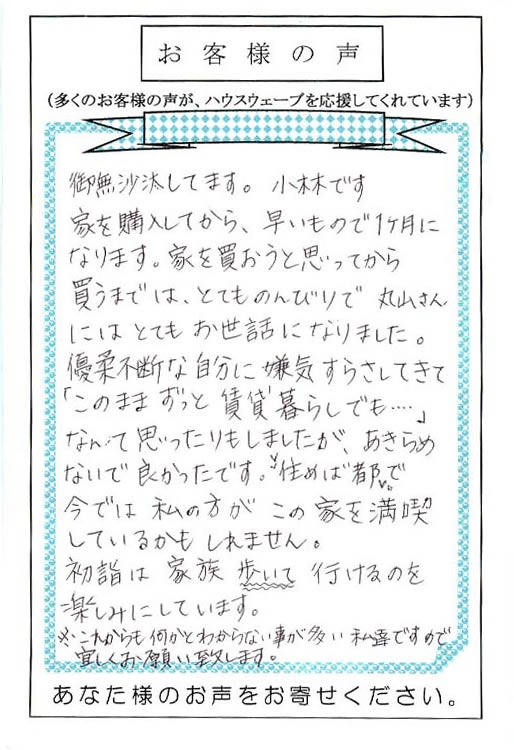 お客様の声
（多くのお客様の声が、ハウスウェーブを応援してくれています）
御無沙汰してます。小林です
家を購入してから、早いもので1ヶ月に
なります。家を買おうと思ってから
買うまでは、とてものんびりで 丸山さん
にはとてもお世話になりました。
優柔不断な自分に嫌気すらさしてきて
「このままずっと賃貸暮らしでも‥‥」
なんて思ったりもしましたが、あきらめ
ないで良かったです。〝住めば都〟で
今では私の方がこの家を満喫
しているかもしれません。
初詣は家族歩いて行けるのを
楽しみにしています。
※これからも何かとわからない事が多い私達ですので
宜しくお願い致します。
あなた様のお声をお寄せください。